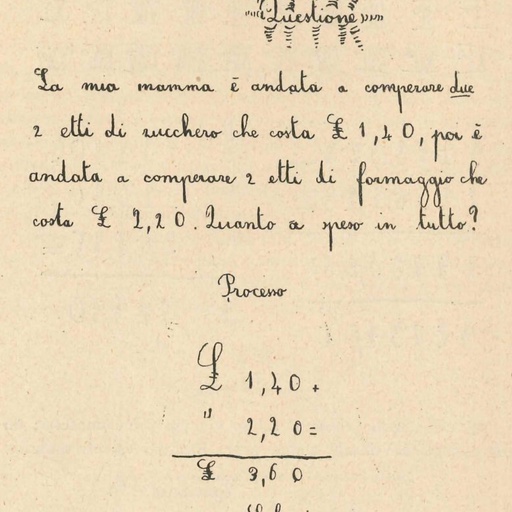 Questione
La mia mamma è andata a comperare due
2 etti di zucchero che costa £ 1,40, poi è
andata a comperare 2 etti di formaggio che
costa £ 2,20. Quanto a speso in tutto?
Processo
£ 1,40+
" 2,20=
£ 3,60